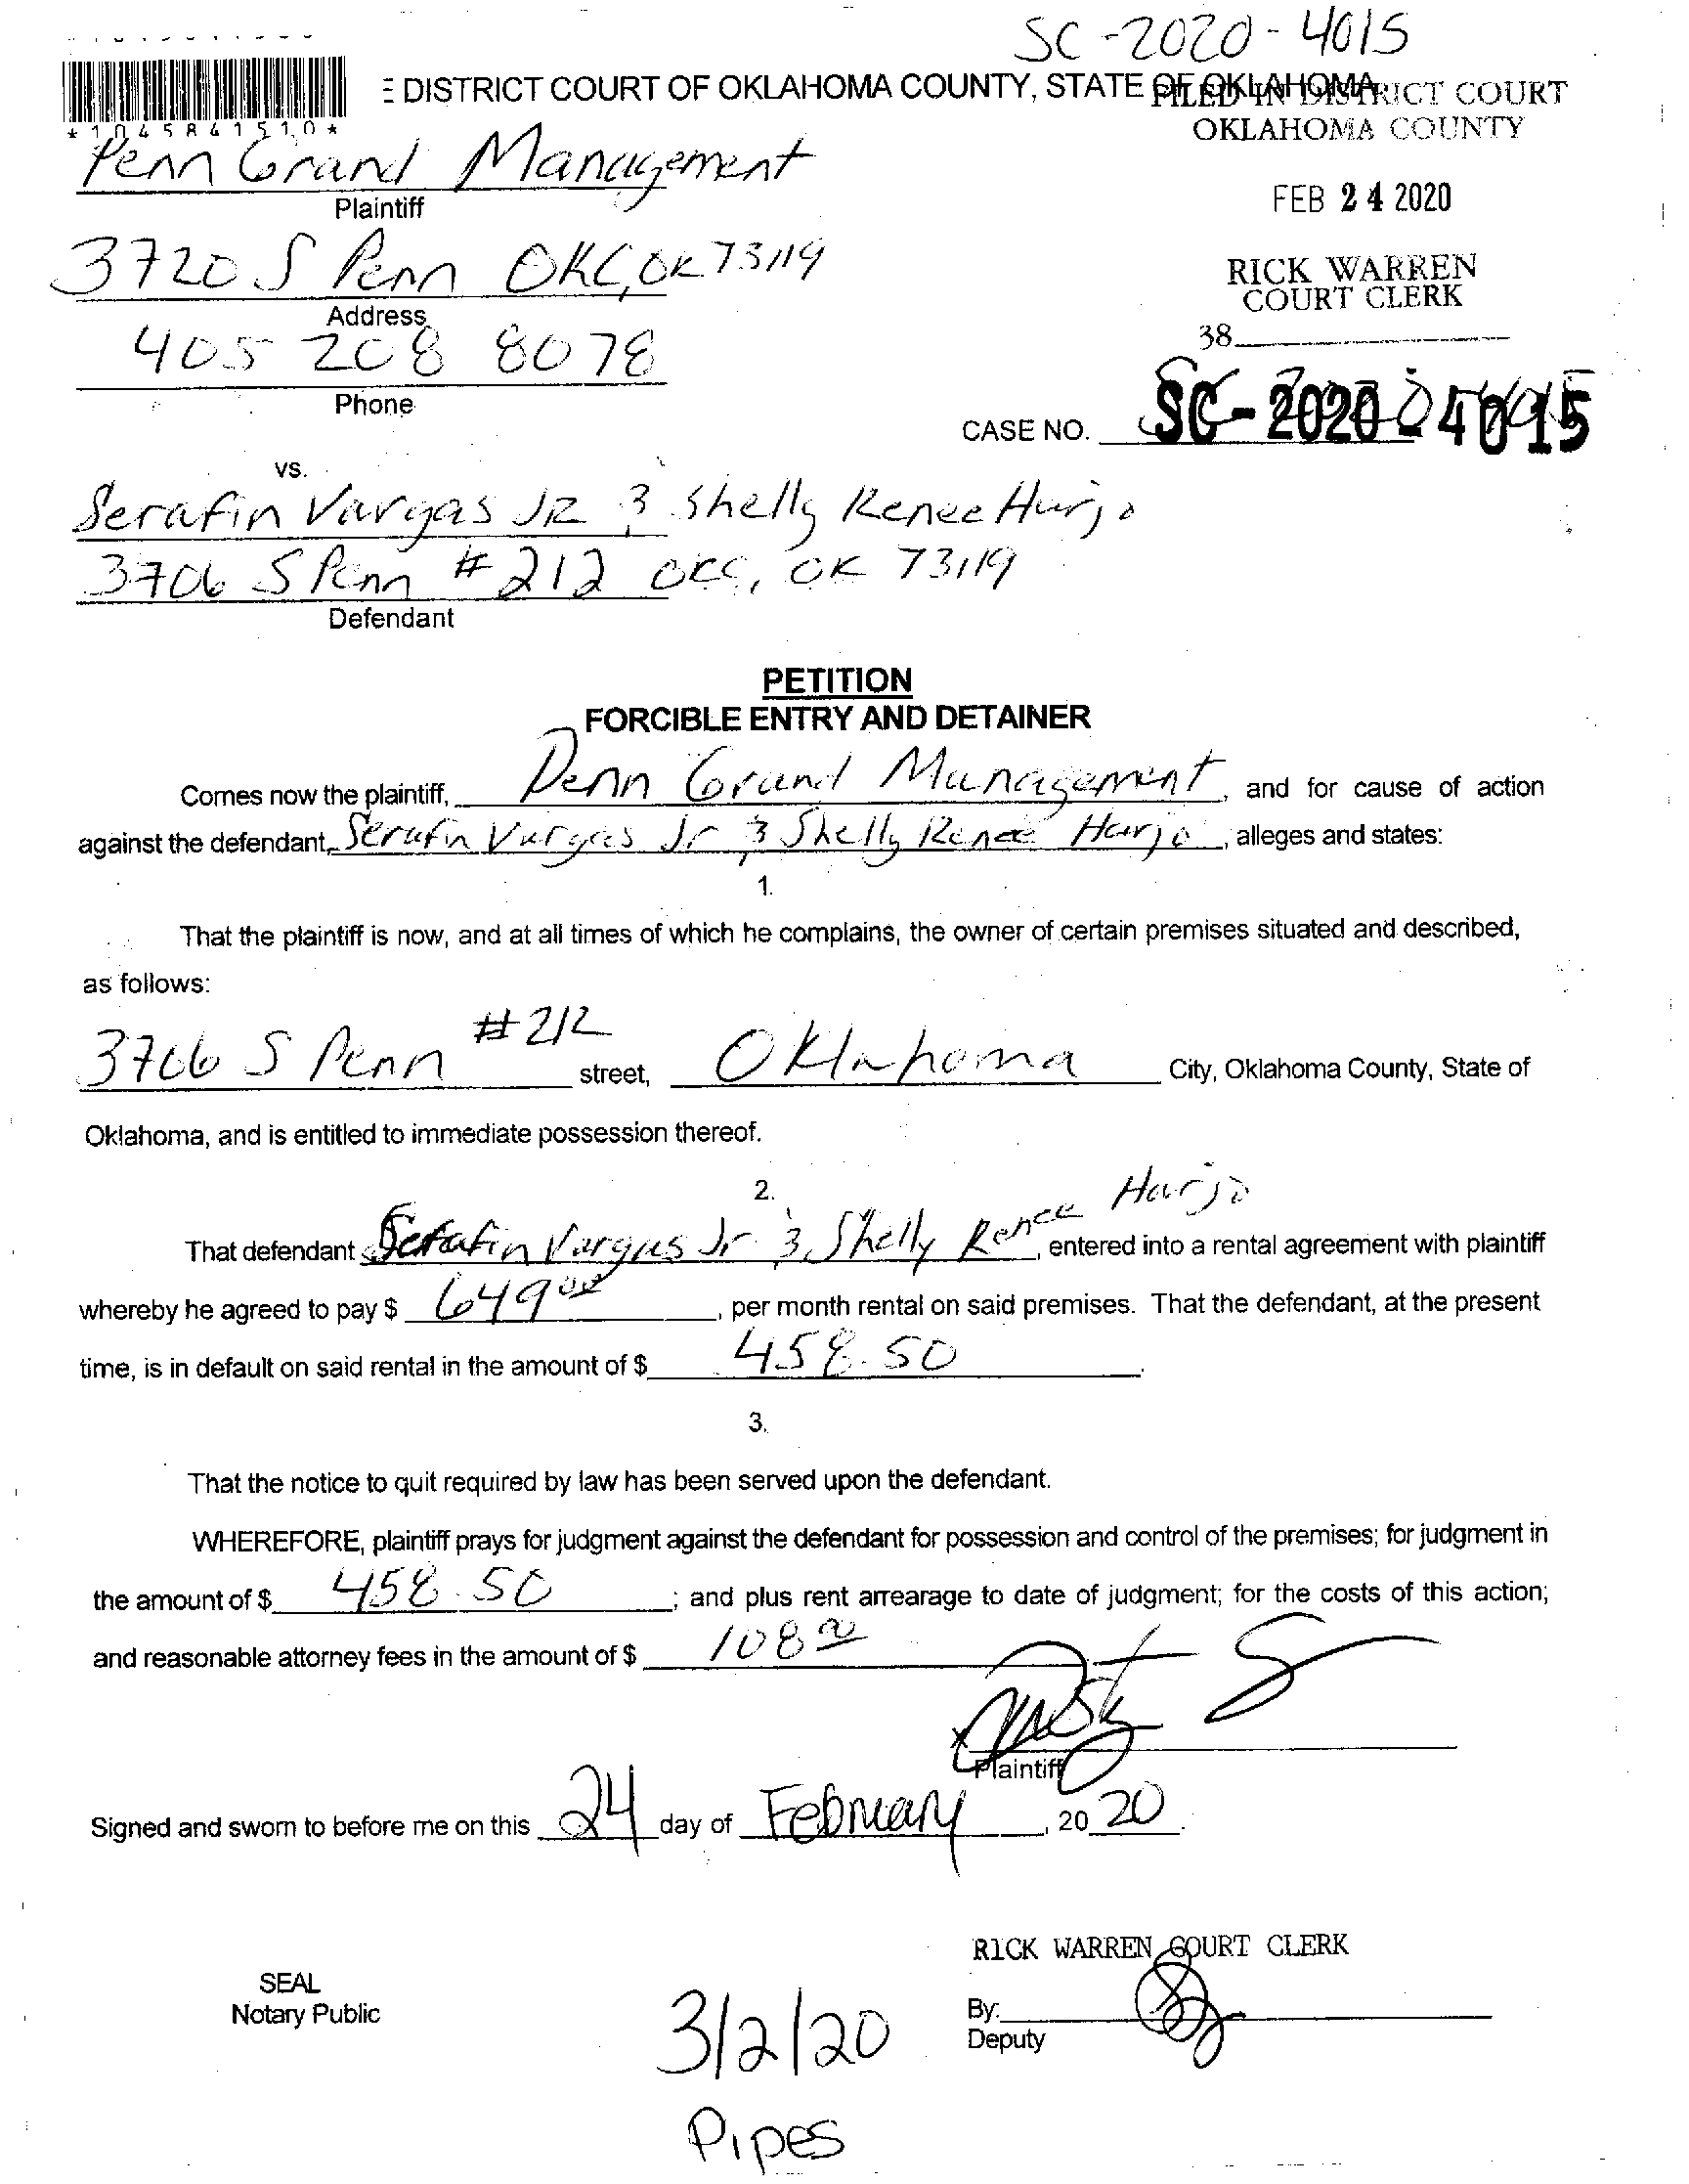 SC-2020-4015
E DISTRICT COURT OF OKLAHOMA COUNTY, STATE OF OKLAHOMA
FILED IN DISTRICT COURT
OKLAHOMA COUNTY
*1045841510*
Penn Grand Management
Plaintiff
FEB 24 2020
3720 S Penn OKC, OK 73119
Address
RICK WARREN
COURT CLERK
405 208 8078
38
Phone
CASE NO. SC-2020-4015
vs.
Serafin Vargas JR & Shelly Renee Harjo
3706 S Penn #212 OKC, OK 73119
Defendant
PETITION
FORCIBLE ENTRY AND DETAINER
Comes now the plaintiff, Penn Grand Management, and for cause of action
against the defendant, Serafin Vargas Jr & Shelly Renee Harjo, alleges and states:
1.
That the plaintiff is now, and at all times of which he complains, the owner of certain premises situated and described,
as follows:
3706 S Penn #212 street, Oklahoma City, Oklahoma County, State of
Oklahoma, and is entitled to immediate possession thereof.
2.
That defendant Serafin Vargas Jr & Shelly Renee Harjo, entered into a rental agreement with plaintiff
whereby he agreed to pay $ 649.00, per month rental on said premises. That the defendant, at the present
time, is in default on said rental in the amount of $ 458.50.
3.
That the notice to quit required by law has been served upon the defendant.
WHEREFORE, plaintiff prays for judgment against the defendant for possession and control of the premises; for judgment in
the amount of $ 458.50; and plus rent arrearage to date of judgment; for the costs of this action;
and reasonable attorney fees in the amount of $ 108.00
x
Plaintiff
Signed and sworn to before me on this 24 day of February, 2020.
RICK WARREN, COURT CLERK
SEAL
Notary Public
By:
Deputy
3/2/20
Pipes